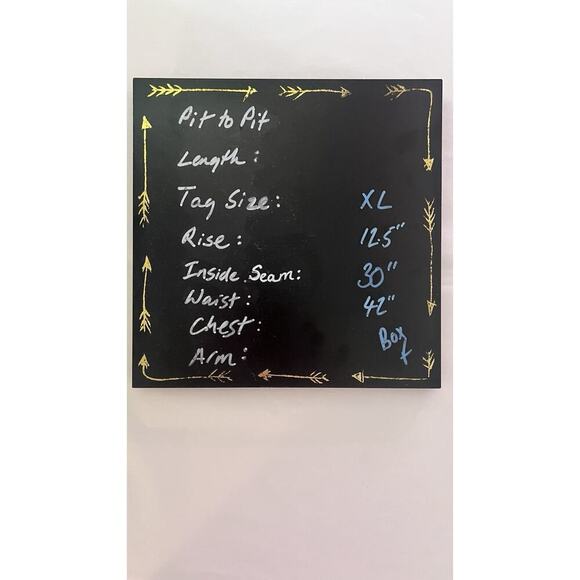 Pit to Pit
Length :
Tag Size: XL
Rise: 12.5"
Inside Seam: 30"
Waist: 42"
Chest:
Arm:
Box